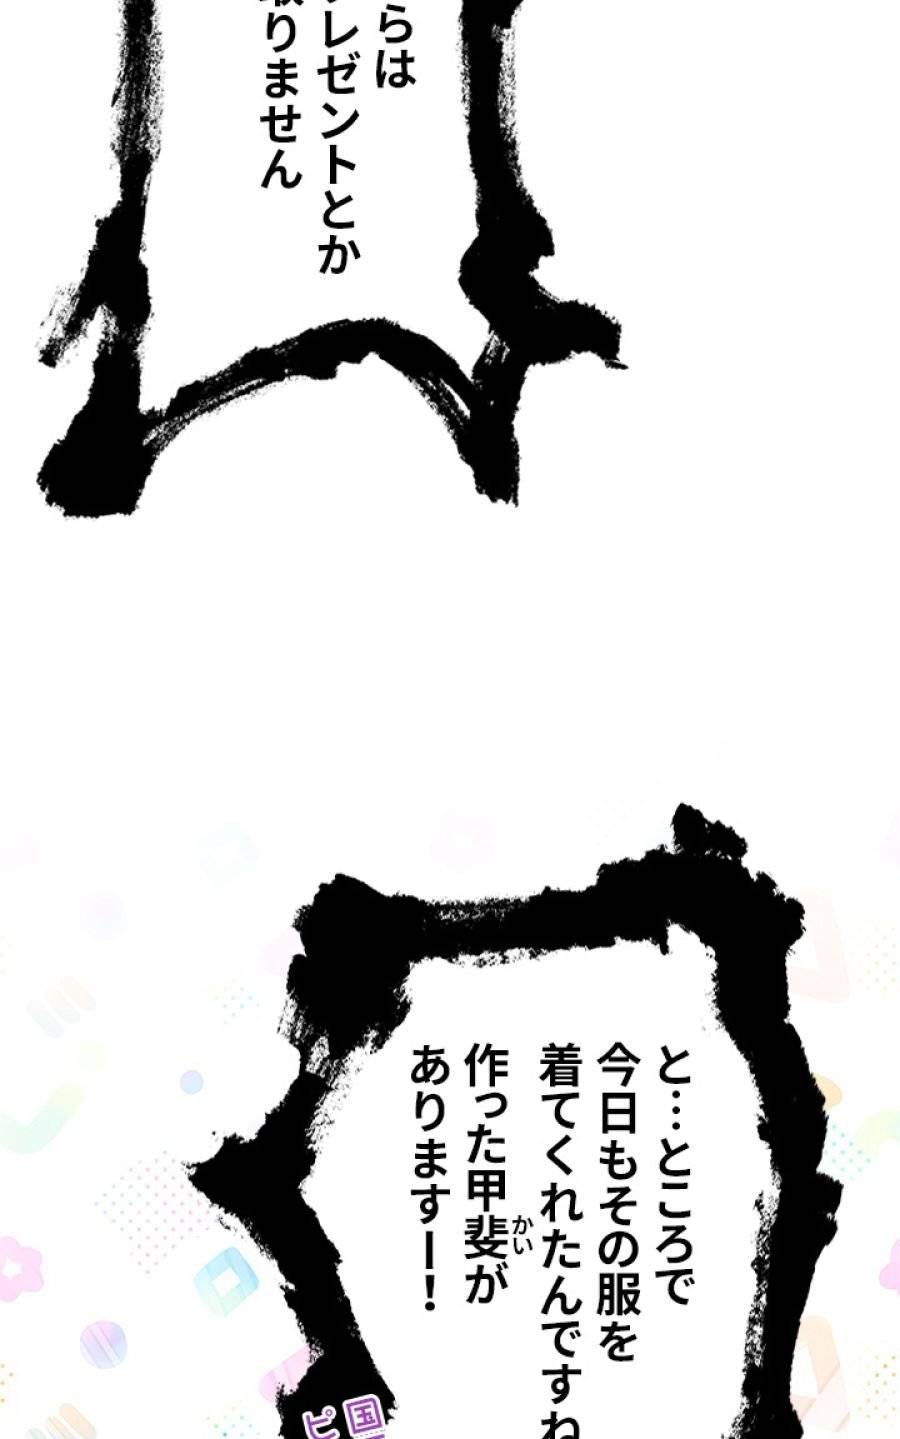 らは
レゼントとか
りません
と…ところで
今日もその服を
着てくれたんですね
作った甲斐が
かい
ありますー!
国
ピ